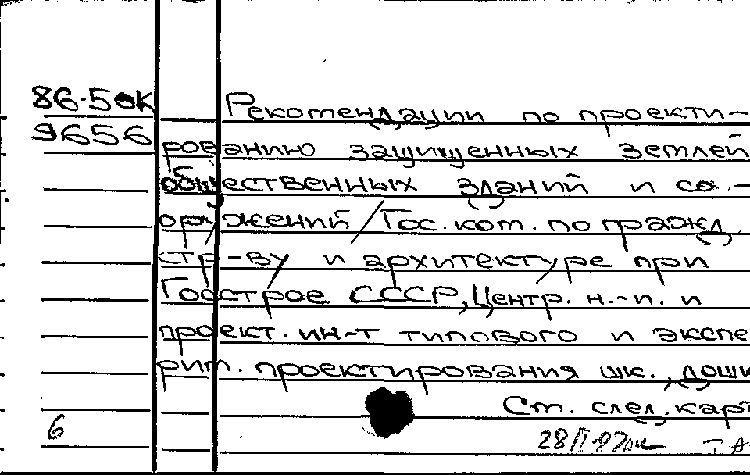 86-5
9656
Рекомендации по проекти-
рованию защищенных землей
общественных зданий и со-
оружений/Гос. ком. по гражд.
стр-ву и архитектуре при
Госстрое СССР, Центр. н.-и. и
проект. ин-т типового и экспе
рит. проектирования шк., дошк
См. след. карт
6